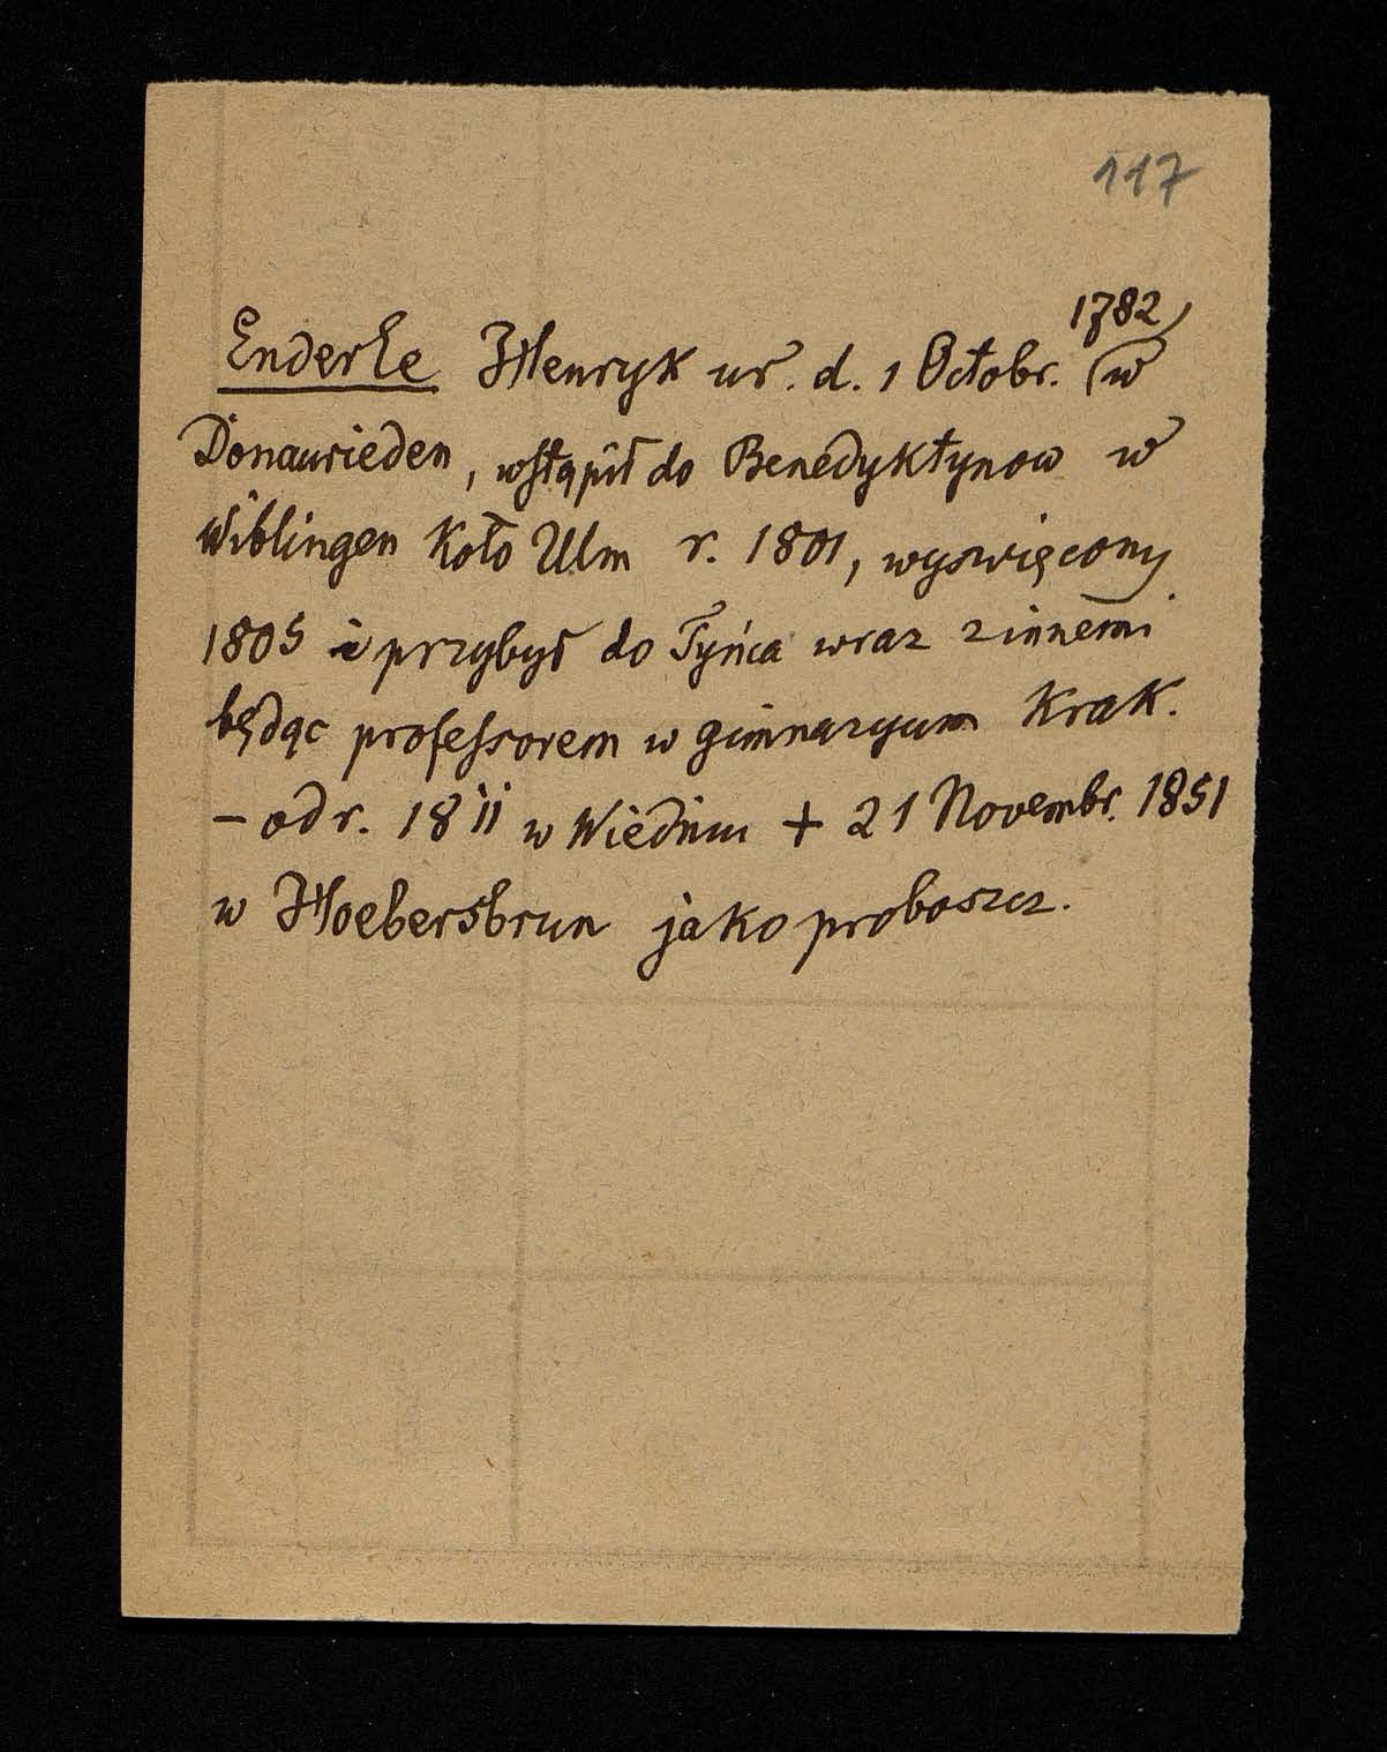 117
Enderle Henryk ur. d. 1 Octobr. 1782 w
Donaurieden, wstąpił do Benedyktynow w
Wiblingen koło Ulm r. 1801, wyswięcony
1805 i przybył do Tyńca wraz z innemi
będąc professorem w gimnazyum Krak.
– od r. 1811 w Wiedniu + 21 Novembr. 1851
w Hoebersbrun jako proboszcz.